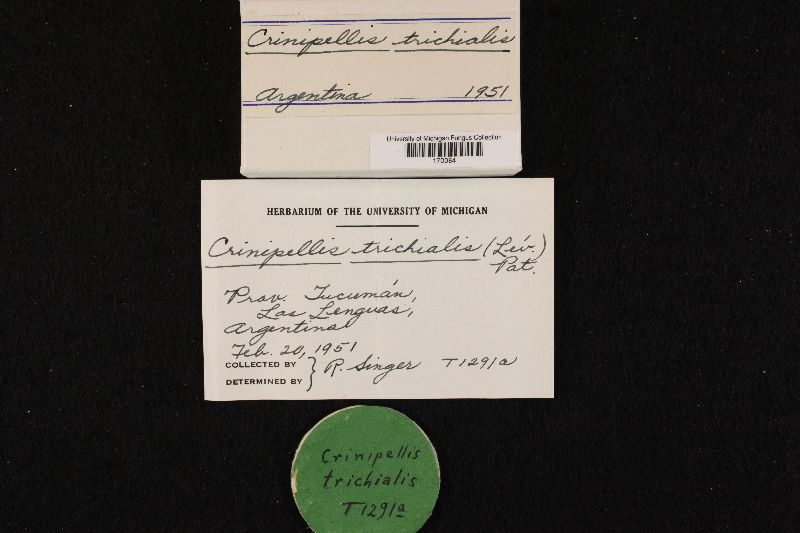 Crinipellis trichialis
Argentina 1951
University of Michigan Fungus Collection
170084
HERBARIUM OF THE UNIVERSITY OF MICHIGAN
Crinipellis trichialis (Lév.)
Pat.
Prov. Tucumán,
Las Lenguas,
Argentina
Feb. 20, 1951
COLLECTED BY
DETERMINED BY } R. Singer T1291a
Crinipellis
trichialis
T1291a